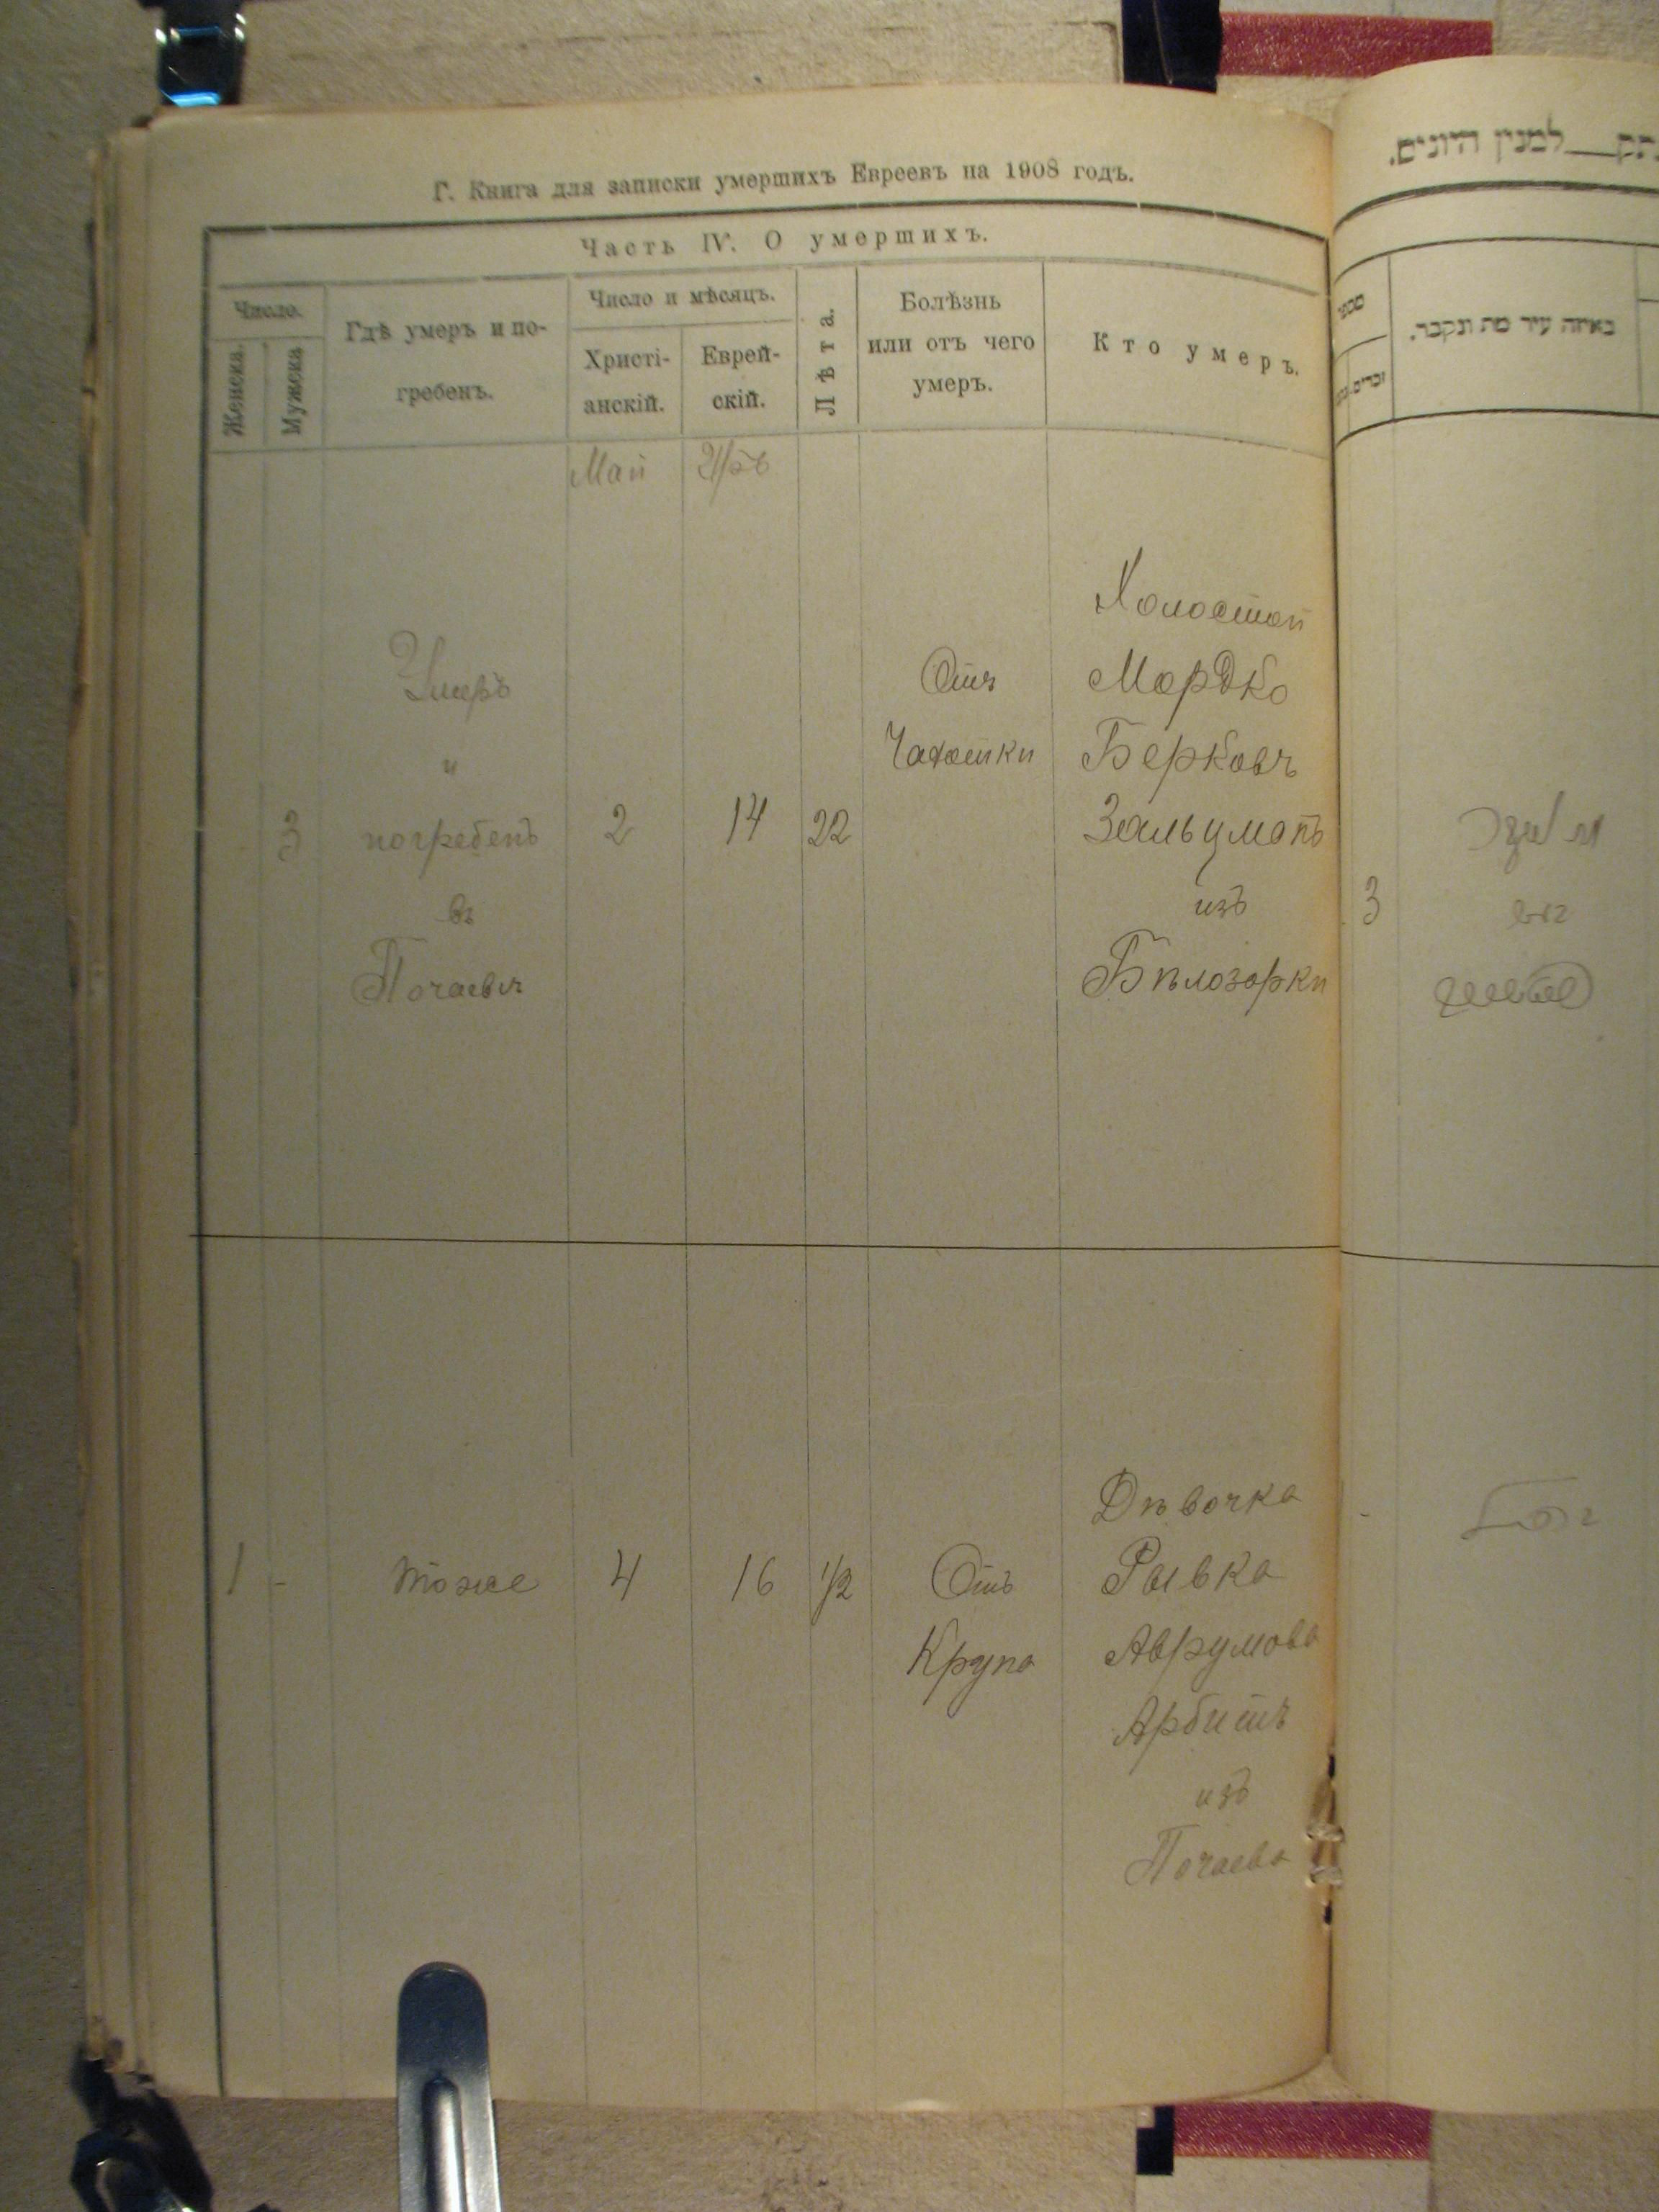 Г. Книга для записки умершихъ Евреевъ на 1908 годъ.
Часть IV. О умершихъ.
Число.
Женска.
Мужска
Гдѣ умеръ и по-
гребенъ.
Число и мѣсяцъ.
Христі-
анскій.
Еврей-
скій.
Лѣта.
Болѣзнь
или отъ чего
умеръ.
Кто умеръ.
Май
3
Умеръ
и
погребенъ
въ
Почаевѣ
2
14
22
Отъ
Чахотки
Холостой
Мордко
Берковъ
Зальцманъ
изъ
Бѣлозорки
1 -
тоже
4
16
1/2
Отъ
Крупа
Дѣвочка
Рывка
Аврумова
Арбитъ
изъ
Почаева
למנין היונים.
באיזה עיר מת ונקבר.
3